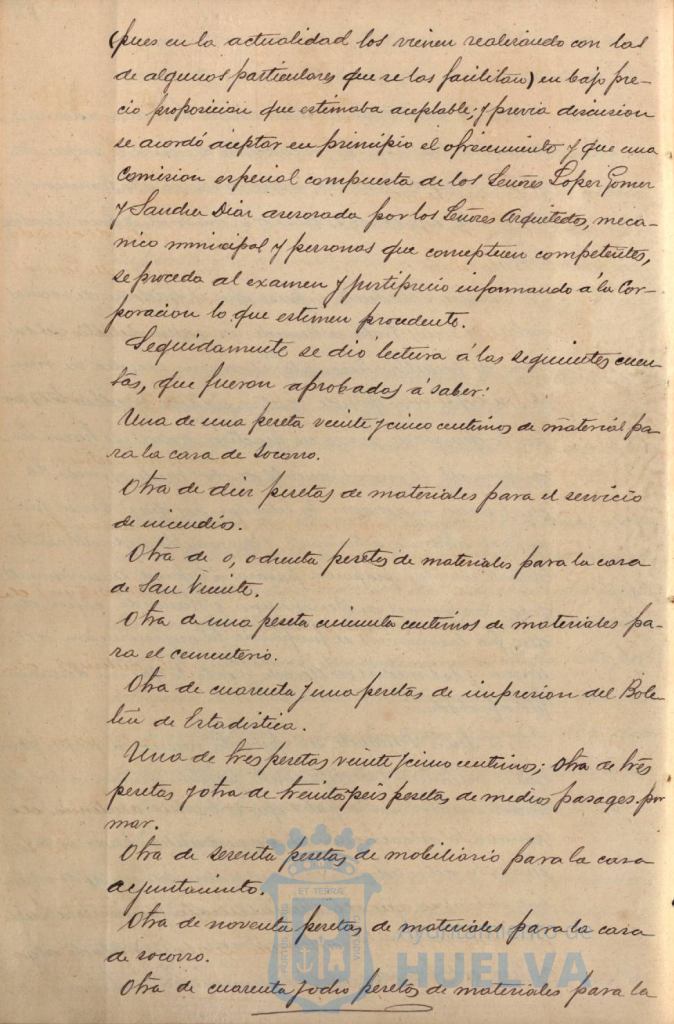 (pues en la actualidad los vienen realizando con las
de algunos particulares que se las facilitan) en bajo pre-
cio proposicion que estimaba aceptable; y previa discusion
se acordó aceptar en principio el ofrecimiento y que una
Comision especial compuesta de los Señores Lopez Gomez
y Sandra Diaz asesorada por los Señores Arquitecto, meca-
nico municipal y personas que conceptuen competentes,
se proceda al examen y justiprecio informando á la Cor-
poracion lo que estimen procedente.
Seguidamente se dió lectura á las seguientes cuen-
tas, que fueron aprobadas á saber:
Una de una peseta veinte y cinco centimos de material pa-
ra la casa de Socorro.
Otra de diez pesetas de materiales para el servicio
de incendios.
Otra de 0, ochenta pesetas de materiales para la casa
de San Vicente.
Otra de una peseta cincuenta centimos de materiales pa-
ra el cementerio.
Otra de cuarenta y una pesetas de impresion del Bole-
tin de Estadistica.
Una de tres pesetas veinte y cinco centimos; otra de tres
pesetas y otra de treinta y seis pesetas de medios pasages por
mar.
Otra de sesenta pesetas de mobiliario para la casa
ayuntamiento.
Otra de noventa pesetas de materiales para la casa
de socorro.
Otra de cuarenta y ocho pesetas de materiales para la
Ayuntamiento de
HUELVA